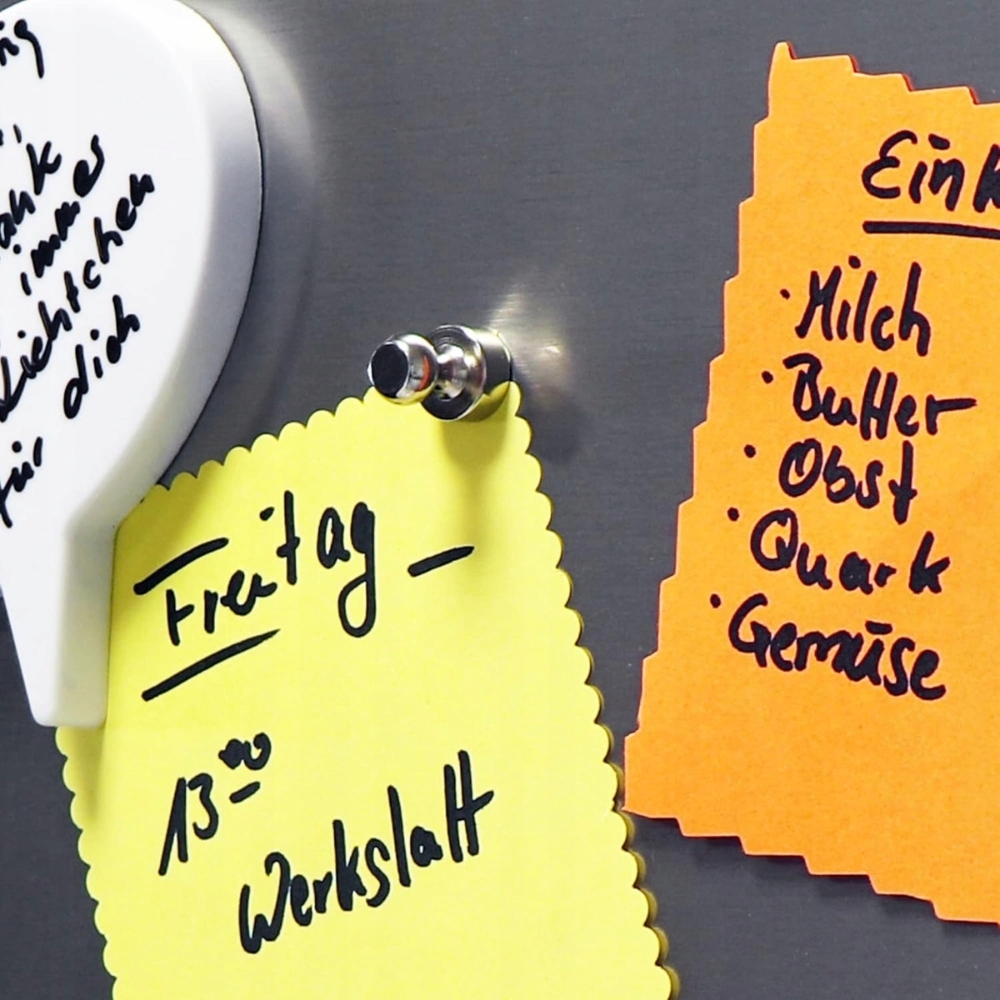 immer
Lichtchen
für dich
Freitag –
13⁰⁰
Werkstatt
Eink
· Milch
· Butter
· Obst
· Quark
· Gemüse